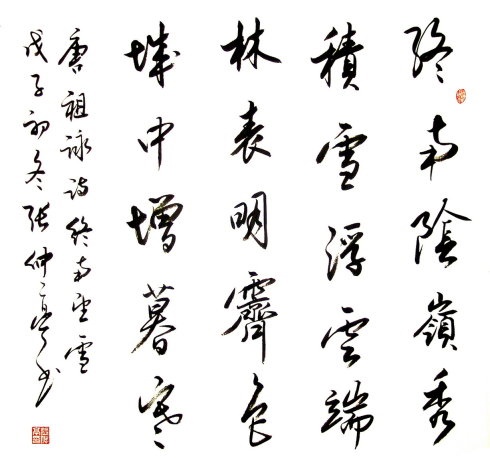 終南陰嶺秀
積雪浮云端
林表明霽色
城中增暮寒
唐祖詠詩終南望雪
戊子初冬張仲亭书